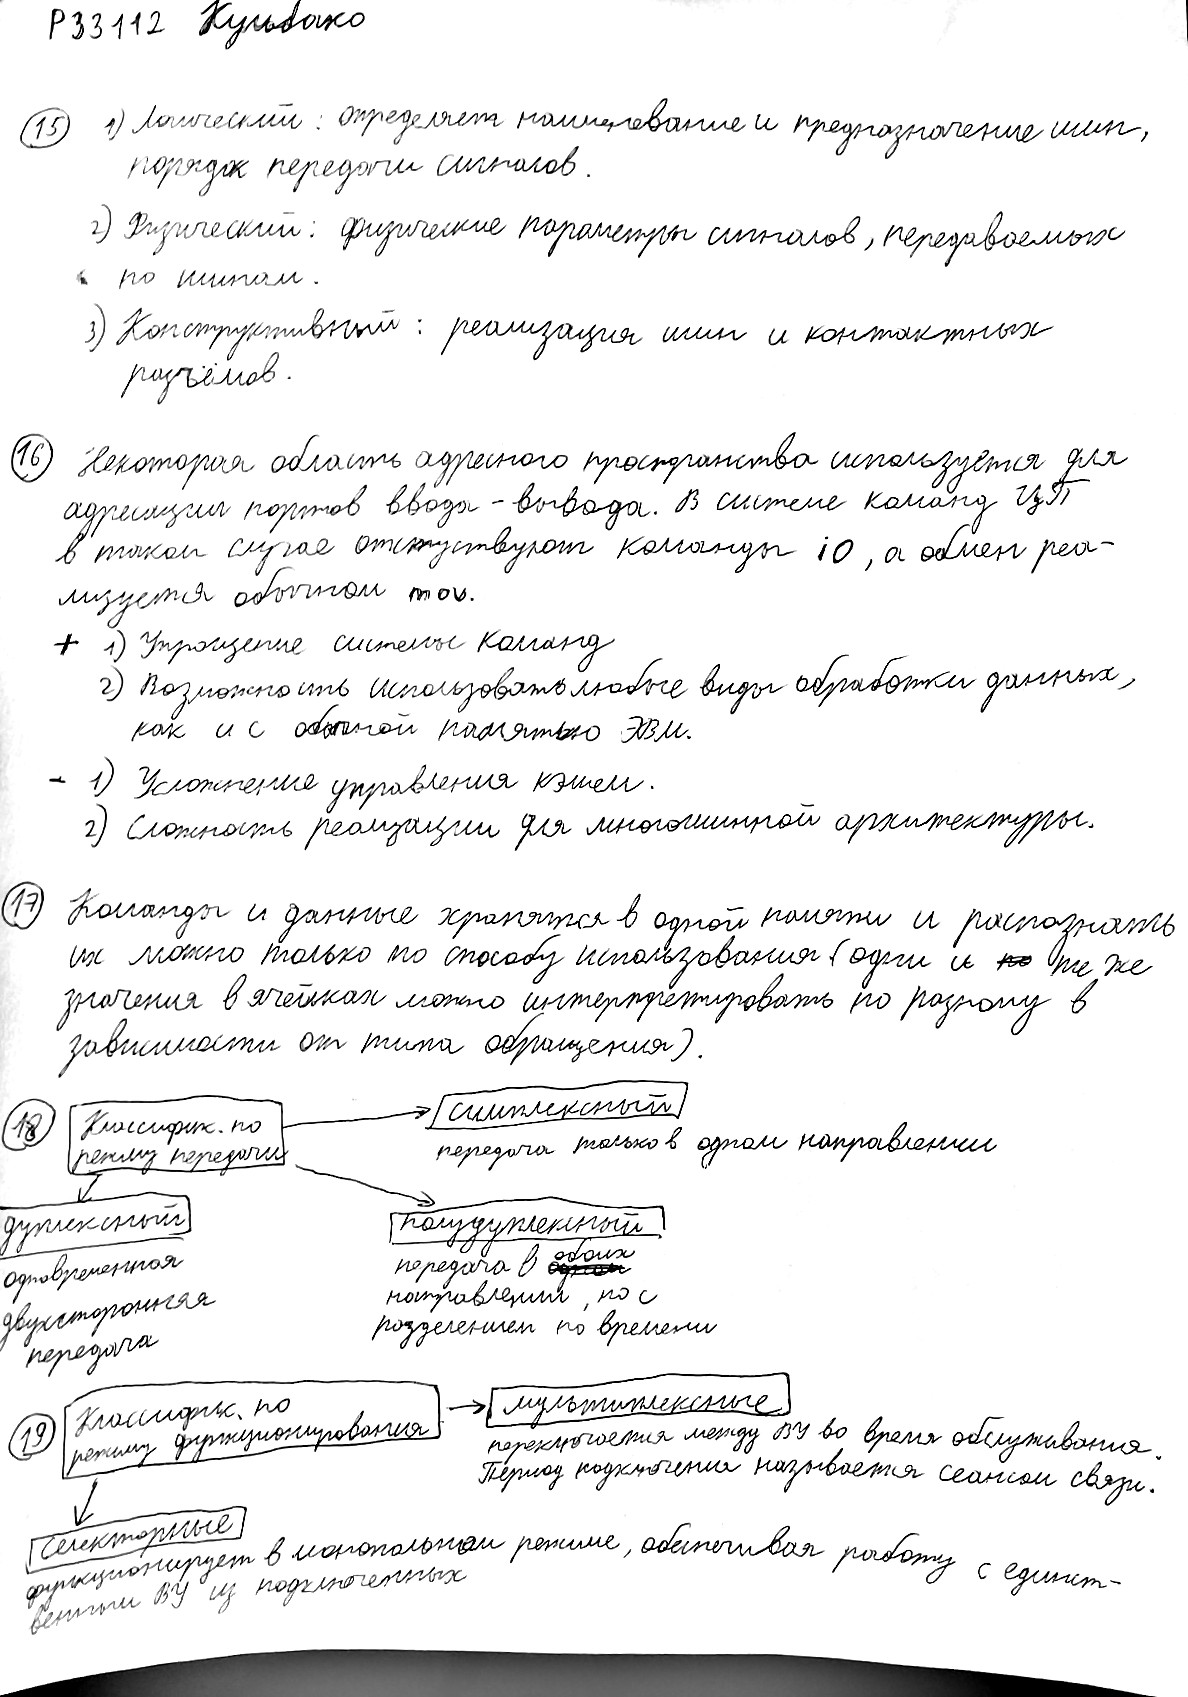 Р33112 Кульбако
15 1) Логический: определяет наименование и предназначение шин,
порядок передачи сигналов.
2) Физический: физические параметры сигналов, передаваемых
по шинам.
3) Конструктивный: реализация шин и контактных
разъёмов.
16 Некоторая область адресного пространства используется для
адресации портов ввода-вывода. В системе команд ЦП
в таком случае отсутствуют команды IO, а обмен реа-
лизуется обычном mov.
+ 1) Упрощение системы команд
2) Возможность использовать любые виды обработки данных,
как и с обычной памятью ЭВМ.
- 1) Усложнение управления кэшем.
2) Сложность реализации для многошинной архитектуры.
17 Команды и данные хранятся в одной памяти и распознать
их можно только по способу использования (одни и те же
значения в ячейках можно интерпретировать по разному в
зависимости от типа обращения).
18 Классифик. по
режиму передачи
симплексный
передача только в одном направлении
дуплексный
одновременная
двухсторонняя
передача
полудуплексный
передача в обоих
направлении, но с
разделением по времени
19 Классифик. по
режиму функционирования
мультиплексные
переключается между ВУ во время обслуживания.
Период подключения называется сеансом связи.
селекторные
функционирует в монопольном режиме, обеспечивая работу с единст-
венным ВУ из подключенных